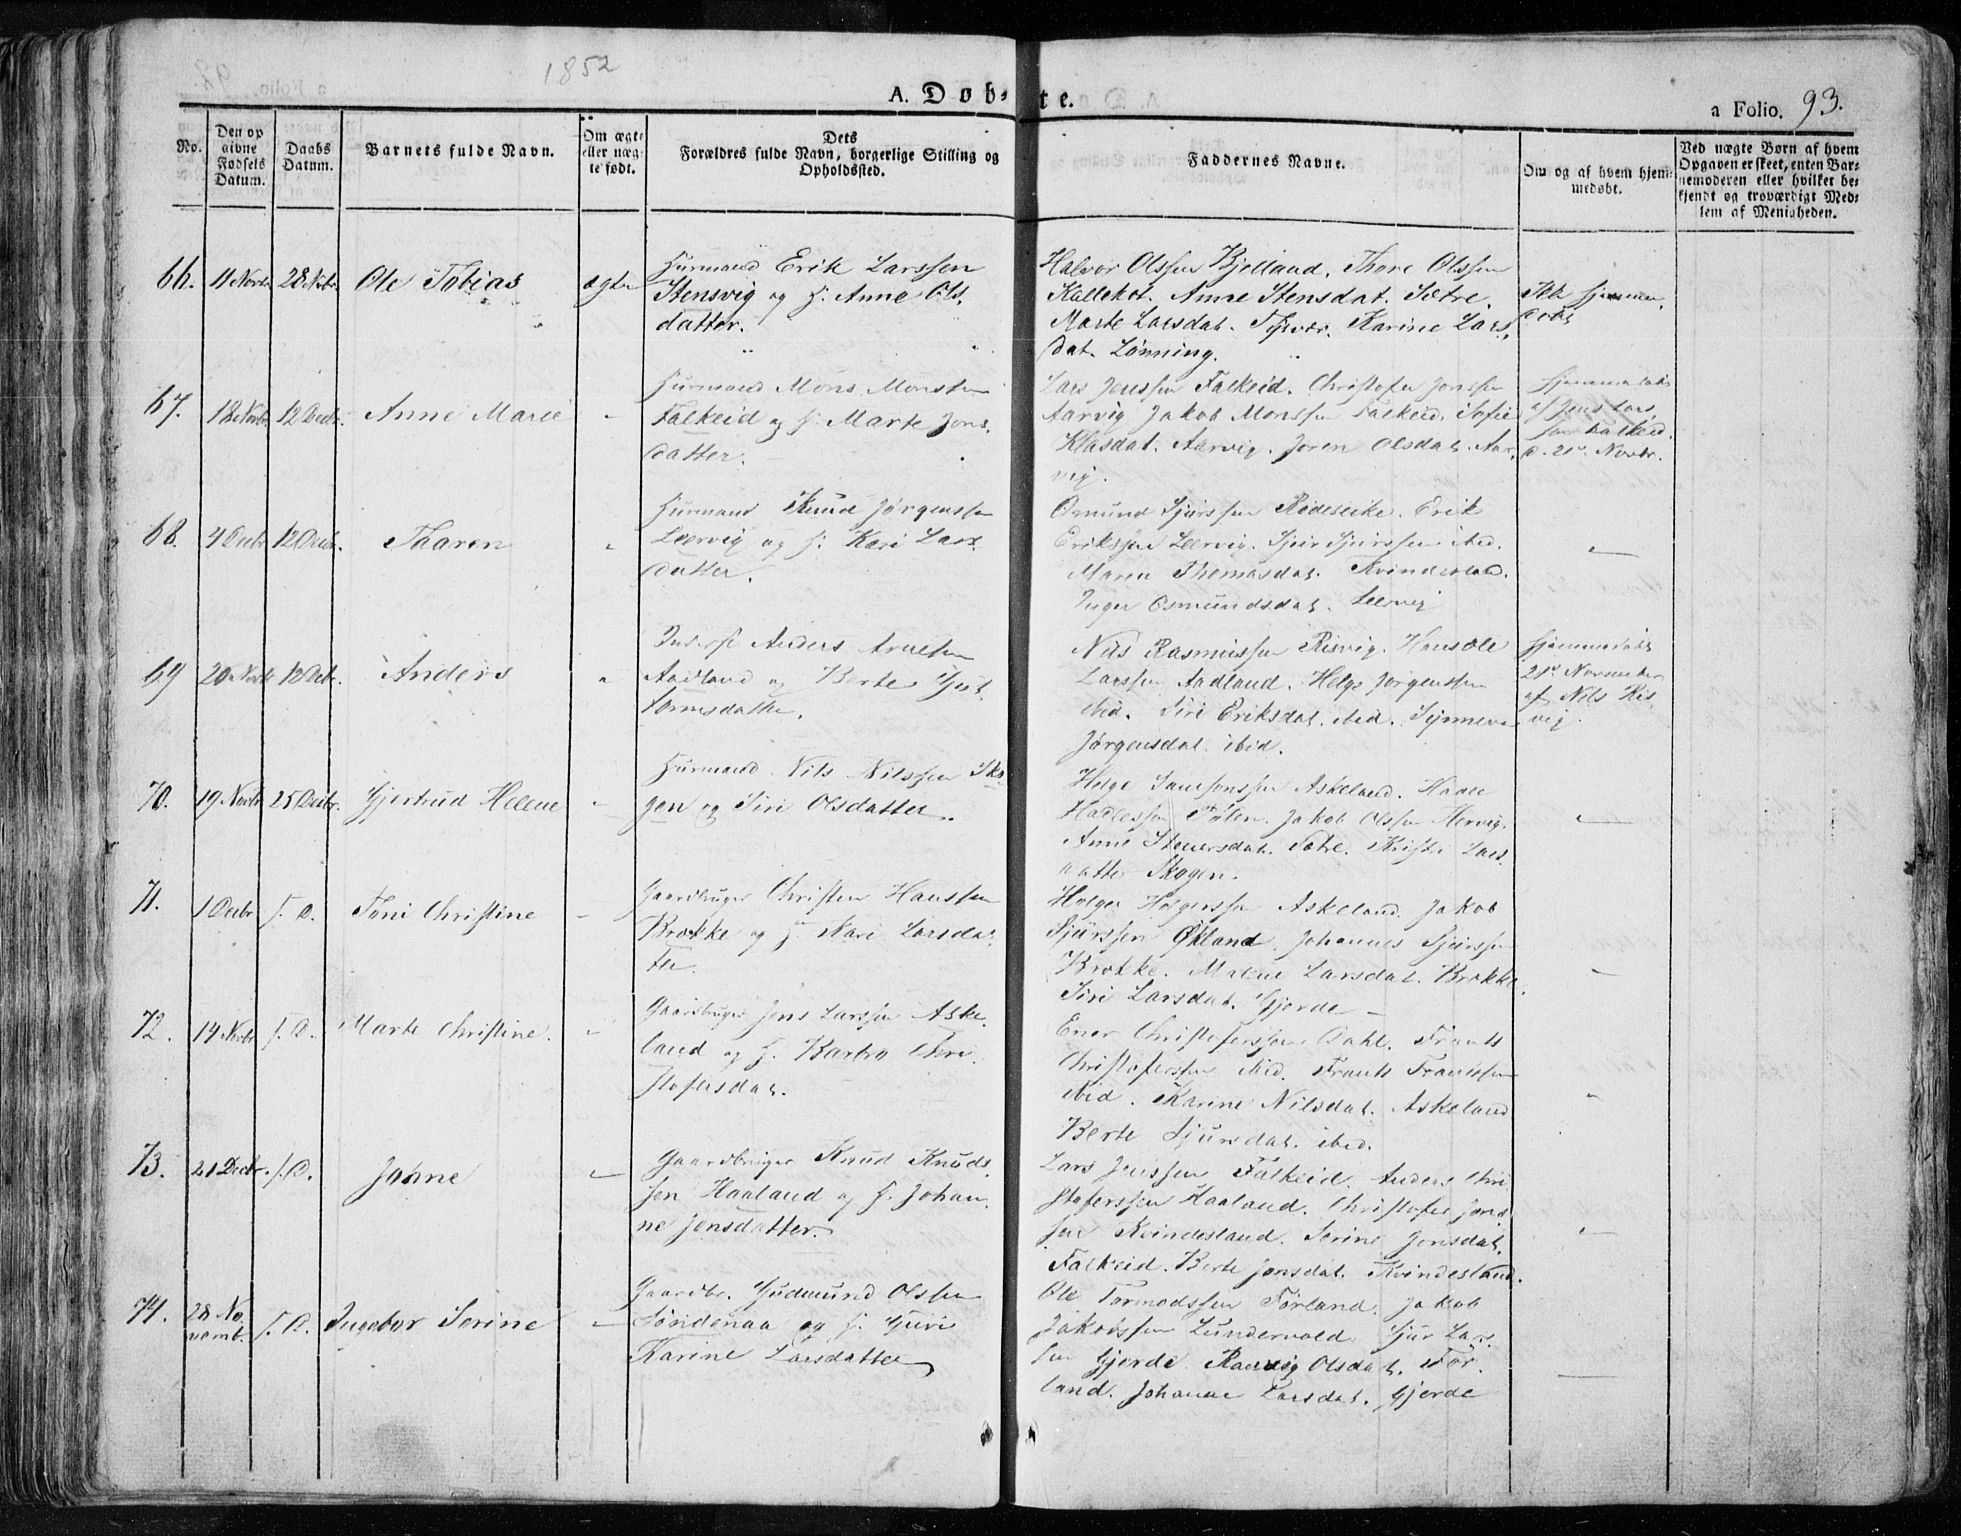 1852
A. Døbte.
a Folio. 93.
No.
Den op
givne
Fødsels
Datum.
Daabs
Datum.
Barnets fulde Navn.
Om ægte
eller uæg-
te født.
Dets
Forældres fulde Navn, borgerlige Stilling og
Opholdssted.
Faddernes Navne.
Om og af hvem hjem-
medøbt.
Ved uægte Børn af hvem
Opgaven er skeet, enten Bar-
nemoderen eller hvilket be-
kjendt og troværdigt Med-
lem af Menigheden.
66. 11 Novbr 28 Novbr. Ole Tobias ægte
Huusmand Erik Larssen
Stensvig og H. Anne Ols
datter.
Halvor Olssen Kjelland. Thore Olssen
Kallekot. Anne Stensdat. Sætre.
Marte Larsdat. Tysvær. Karine Lars
dat. Lönning.
Ikke hjemme
døbt
67. 18 Novbr. 12 Decbr. Anne Marie "
Huusmand Mons Monssen
Falkeid og H. Marte Jons
datter.
Lars Jenssen Falkeid. Christofer Jonssen
Aarvig Jakob Monssen Falkeid. Sofie
Klasdat. Aarvig. Joren Olsdat. Aar
vig.
Hjemmedøbt
af Jens Lars
sen Falkeid
d. 21. Novbr.
68. 4 Decbr 12 Decbr. Thaaren "
Huusmand Knud Jørgenssen
Leervig og H. Kari Lars
datter.
Osmund Sjurssen Rødeseike. Erik
Erikssen Leervig. Sjur Sjurssen ibid.
Maren Thomasdat. Kvindesland.
Inger Osmundsdat. Leervig
69 20 Novbr 12 Decbr. Anders "
Inderst Anders Arnesen
Aadland og Berte Gut
tormsdatter.
Nils Rasmussen Risvig. Hans Ole
Larssen Aadland. Helge Jørgenssen
ibid. Siri Eriksdat. ibid. Synneva
Jørgensdat. ibid.
Hjemmedøbt
21. November
af Nils Ris
vig.
70. 19 Novbr 25 Decbr. Gjertrud Helene "
Huusmand Nils Nilssen Sko
gen og Siri Olsdatter.
Helge Samsonssen Askeland. Haave
Hadlessen Pølen. Jakob Olssen Hervig.
Anne Steuersdat. Sætre. Kristi Lars
datter Skogen.
71. 1 Decbr s. D. Toni Christine "
Gaardbruger Christen Hanssen
Brokke og H. Kari Larsdat
ter.
Holger Holgerssen Askeland. Jakob
Sjurssen Økland. Johannes Sjurssen
Brokke. Malene Larsdat. Brokke
Siri Larsdat. Gjerde
72. 14 Novbr s. D. Marte Christine. "
Gaardbruger Jens Larssen Aske
land og H. Barbro Chri
stofersdat.
Ener Christoferssen Dahl. Frants
Christoferssen ibid. Frants Frantssen
ibid. Karine Nilsdat. Askeland
Berte Sjursdat. ibid.
73. 21 Decbr. s. D. Johne
Gaardbruger Knud Knuds
sen Haaland og H. Johan
ne Jonsdatter.
Lars Jenssen Falkeid. Anders Chri
stoferssen Haaland. Christofer Jons
sen Kvindesland. Serine Jonsdat.
Falkeid. Berte Jonsdat. Kvindesland.
74. 28 No
vemb. s. D. Ingebor Serine
Gaardbr. Gudmund Olssen
Söndenaa og H. Guri
Karine Larsdatter
Ole Tormodssen Förland. Jakob
Jakobssen Lundervold. Sjur Lars
sen Gjerde. Ranvig Olsdat. För
land. Johanne Larsdat. Gjerde